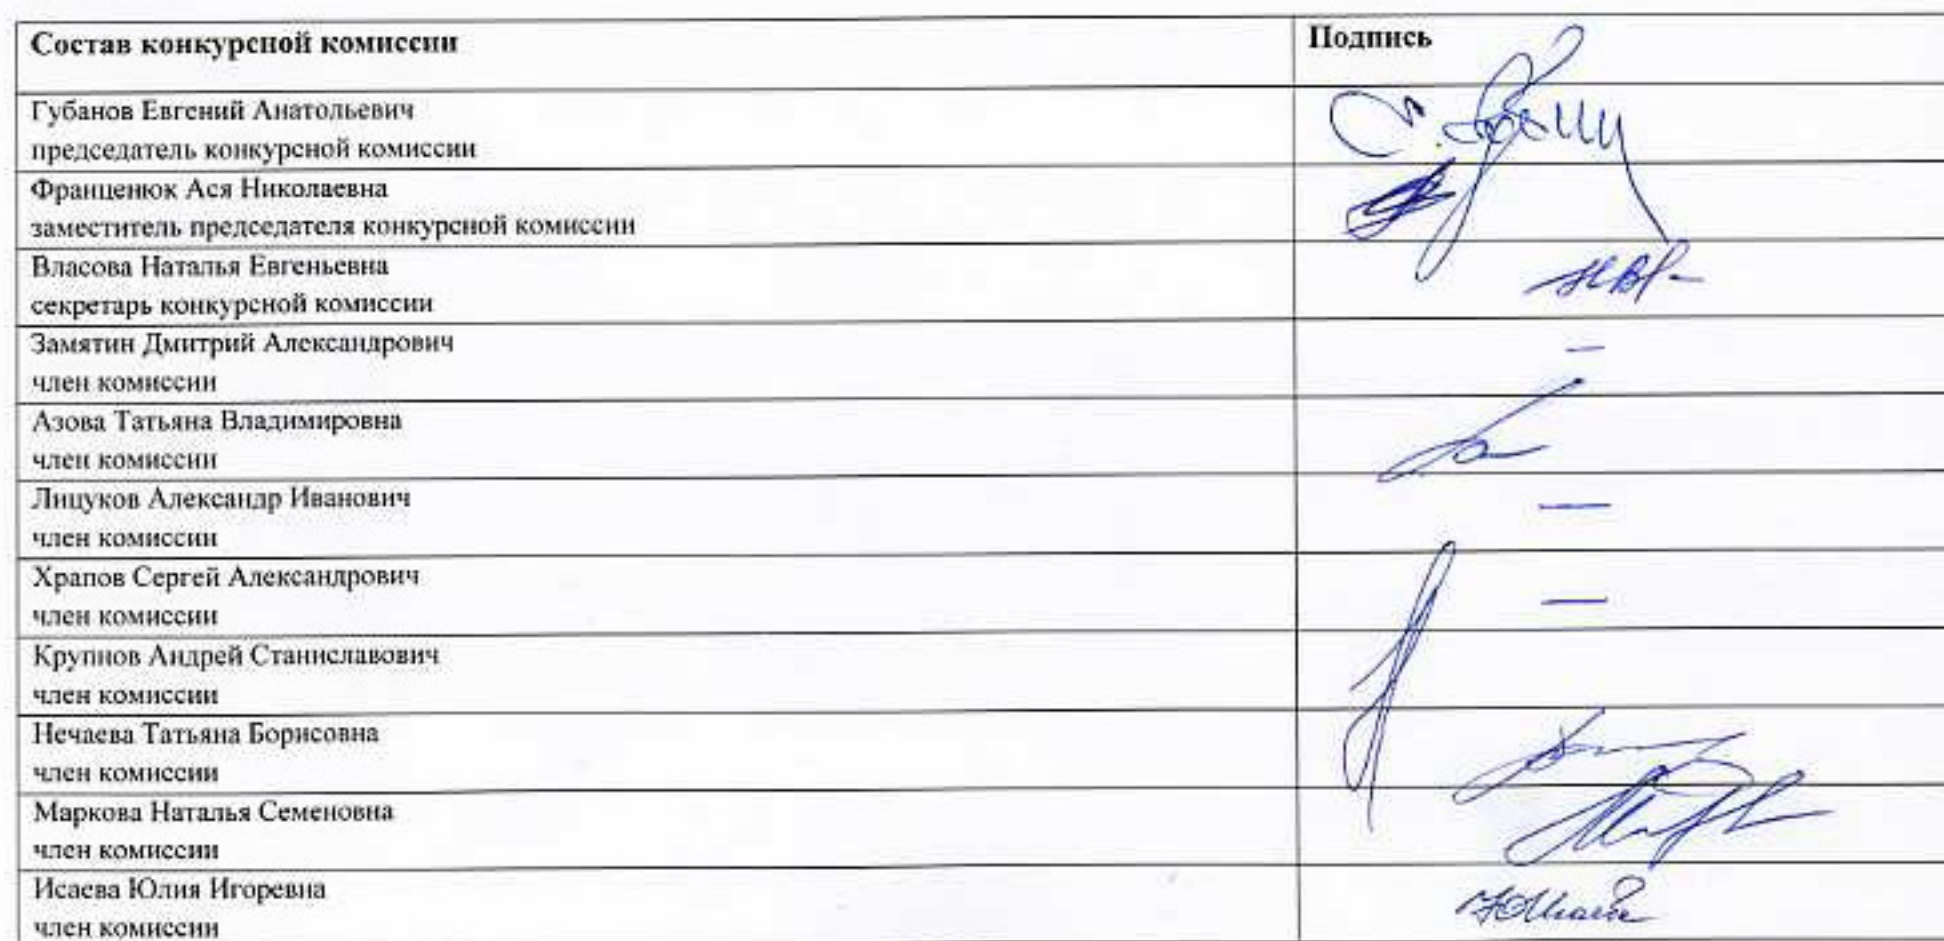 Состав конкурсной комиссии
Подпись
Губанов Евгений Анатольевич
председатель конкурсной комиссии
Франценюк Ася Николаевна
заместитель председателя конкурсной комиссии
Власова Наталья Евгеньевна
секретарь конкурсной комиссии
Замятин Дмитрий Александрович
–
член комиссии
Азова Татьяна Владимировна
член комиссии
Лицуков Александр Иванович
—
член комиссии
Храпов Сергей Александрович
—
член комиссии
Крупнов Андрей Станиславович
член комиссии
Нечаева Татьяна Борисовна
член комиссии
Маркова Наталья Семеновна
член комиссии
Исаева Юлия Игоревна
член комиссии